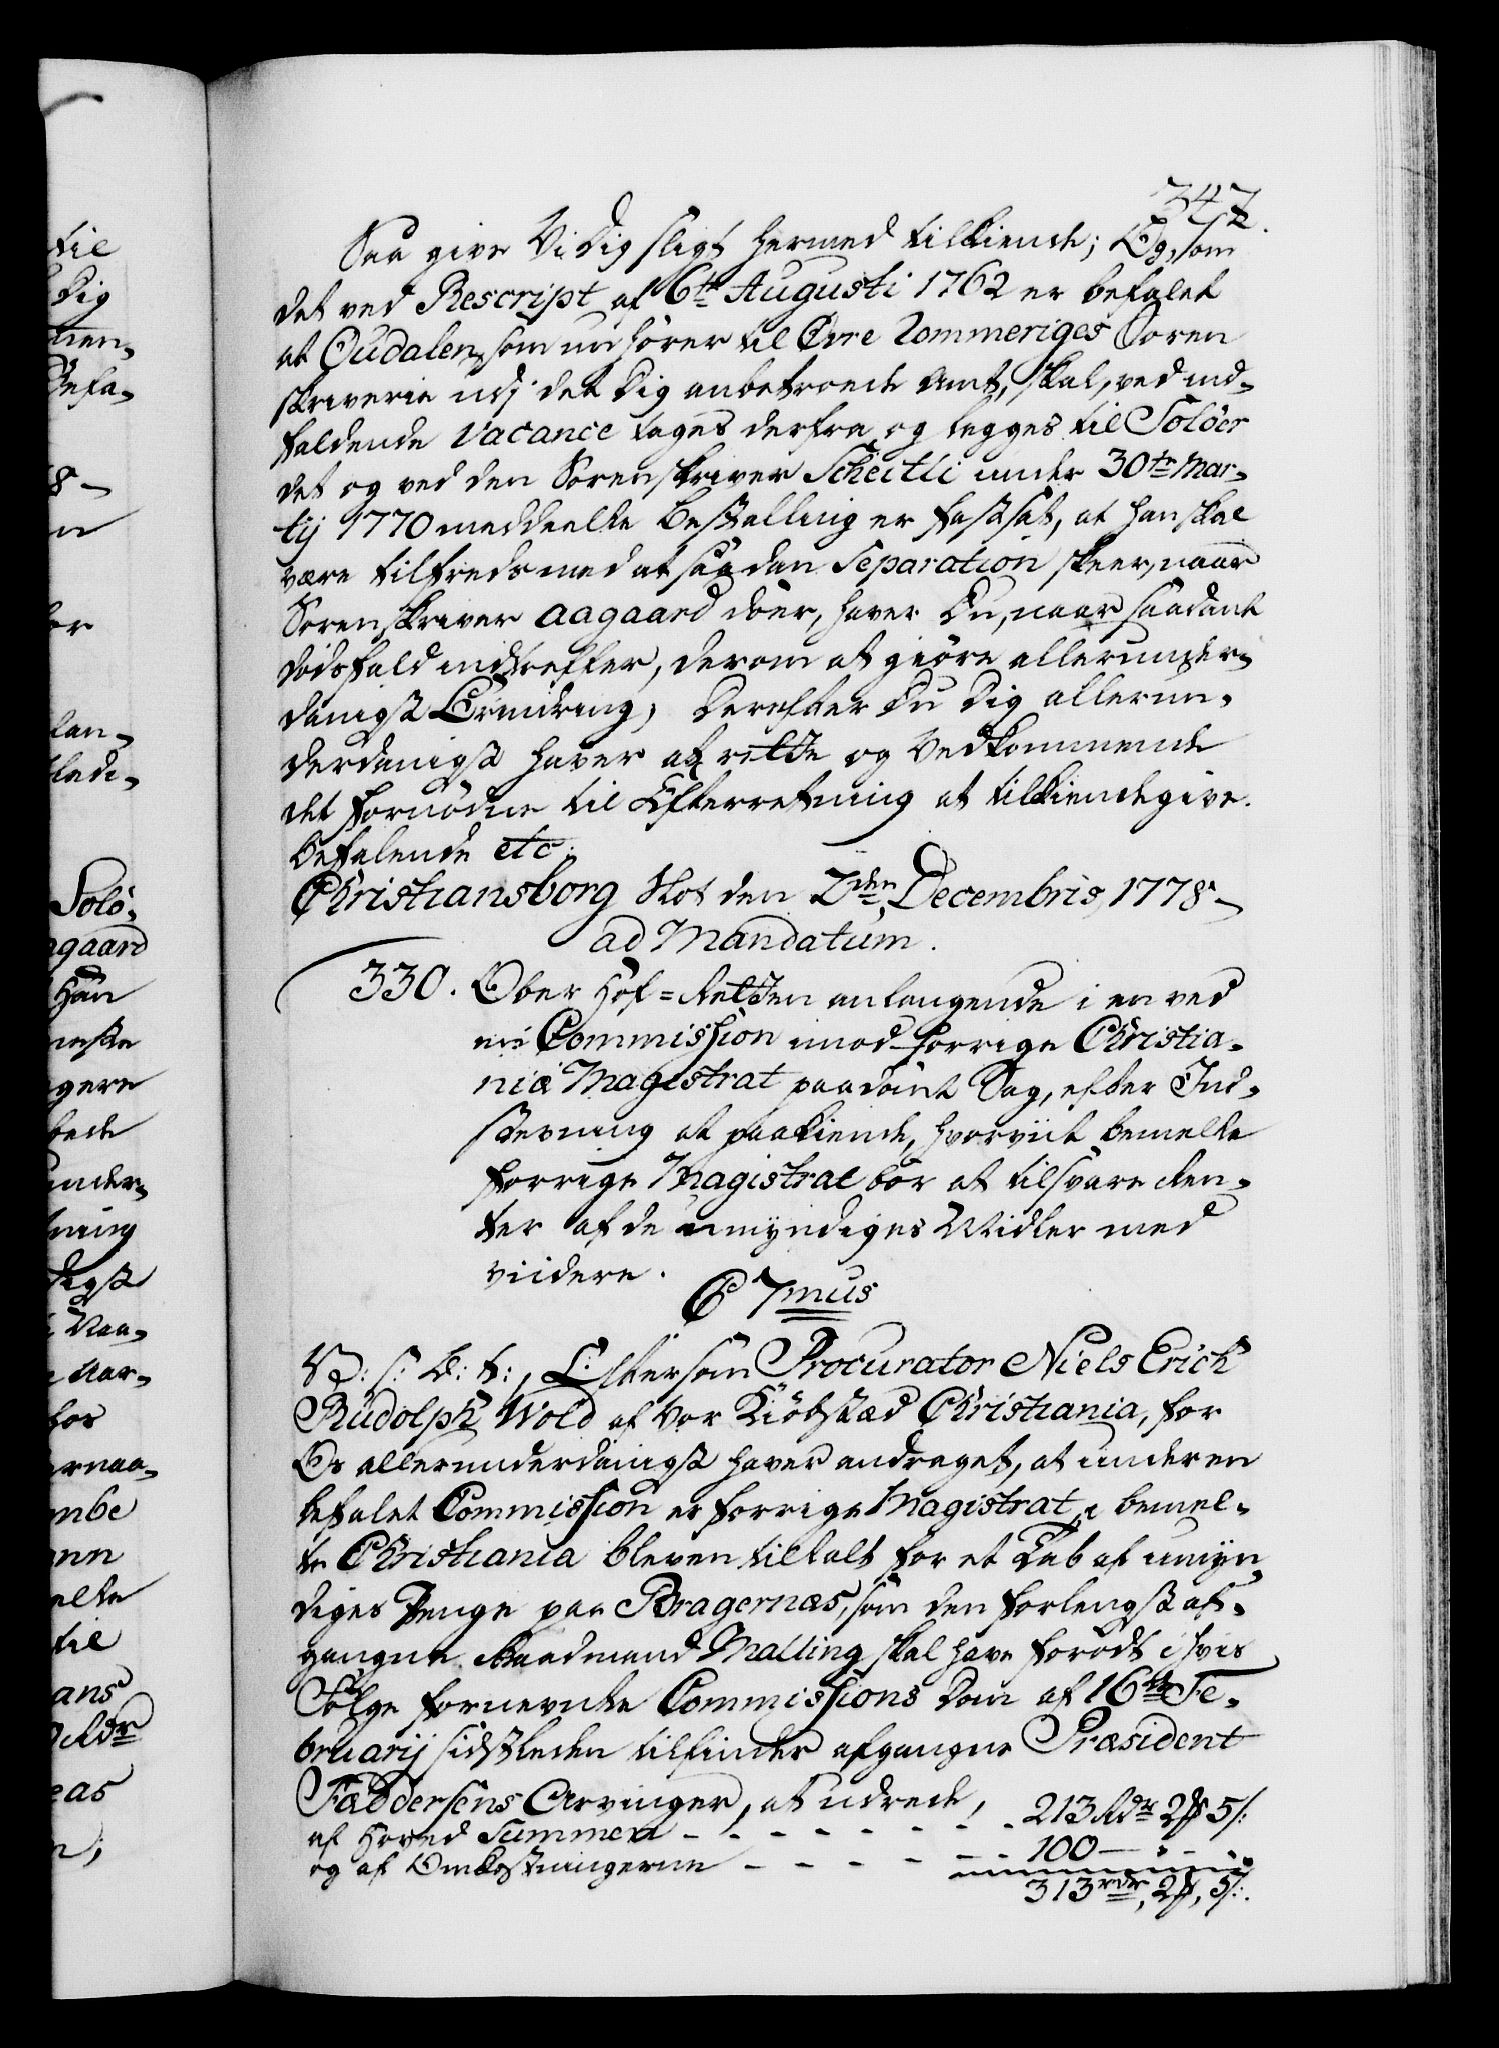 347.
Saa give Vi Dig sligt hermed tilkiende; Og, som
det ved Rescript af 6te Augusti 1762 er befalet
at Oudalen, som nu hører til Øvre Rommeriges Soren
skriverie udj det Dig anbetroede Amt, skal, ved ind-
faldende Vacance tages derfra og legges til Soløer
det og ved den Sorenskriver Scheitli under 30te Mar-
tij 1770 meddeelte Bestalling er fastsat, at han skal
være tilfreds med at saadan Separation skeer, naar
Sorenskriver Aagaard døer, haver Du, naar saadant
Dødsfald indtreffer, derom at giøre allerunder-
danigst Erindring; Derefter Du Dig allerun-
derdanigst haver at rette og Vedkommende
det fornødne til Efterretning at tilkiendegive.
Befalende etc:
Christiansborg Slot den 2den Decembris, 1778-
ad Mandatum.
330. Ober Hof=Retten anlangende i en ved
en Commission imod forrige Christia-
niæ Magistrat paadømt Sag, efter Ind-
stevning at paakiende, hvorviit bemelte
forrige Magistrat bør at tilsvare Ren-
ter af de umyndiges Midler med
viidere.
C 7mus
V: S: G: T:, Eftersom Procurator Niels Erich
Rudolph Wold af Vor Kiøbstæd Christiania, for
Os allerunderdanigst haver andraget, at under en
befalet Commission er forrige Magistrat i bemel-
te Christiania bleven tiltalt for et Tab af umyn-
diges Penge paa Bragernæs, som den forlengst af-
gangne Raadmand Malling skal have forødt i hvis
Følge fornevnte Commissions Dom af 16te Fe-
bruarij sidstleden tilfinder afgangne Præsident
Fæddersens Arvinger, at udrede,
af Hoved Summen - - - - - - - - 213 Rdr 2 5 s:
og af Omkostningerne - - - - - - 100 — " - "
313 rdr, 2, 5 s: